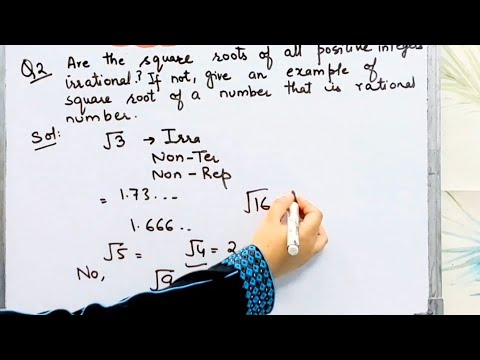 Q2 Are the square roots of all positive integers
irrational? If not, give an example of
square root of a number that is rational
number.
Sol: √3 → Irra
Non-Ter
Non-Rep
= 1.73...
1.666..
√16
√5 = √4 = 2
No, √9